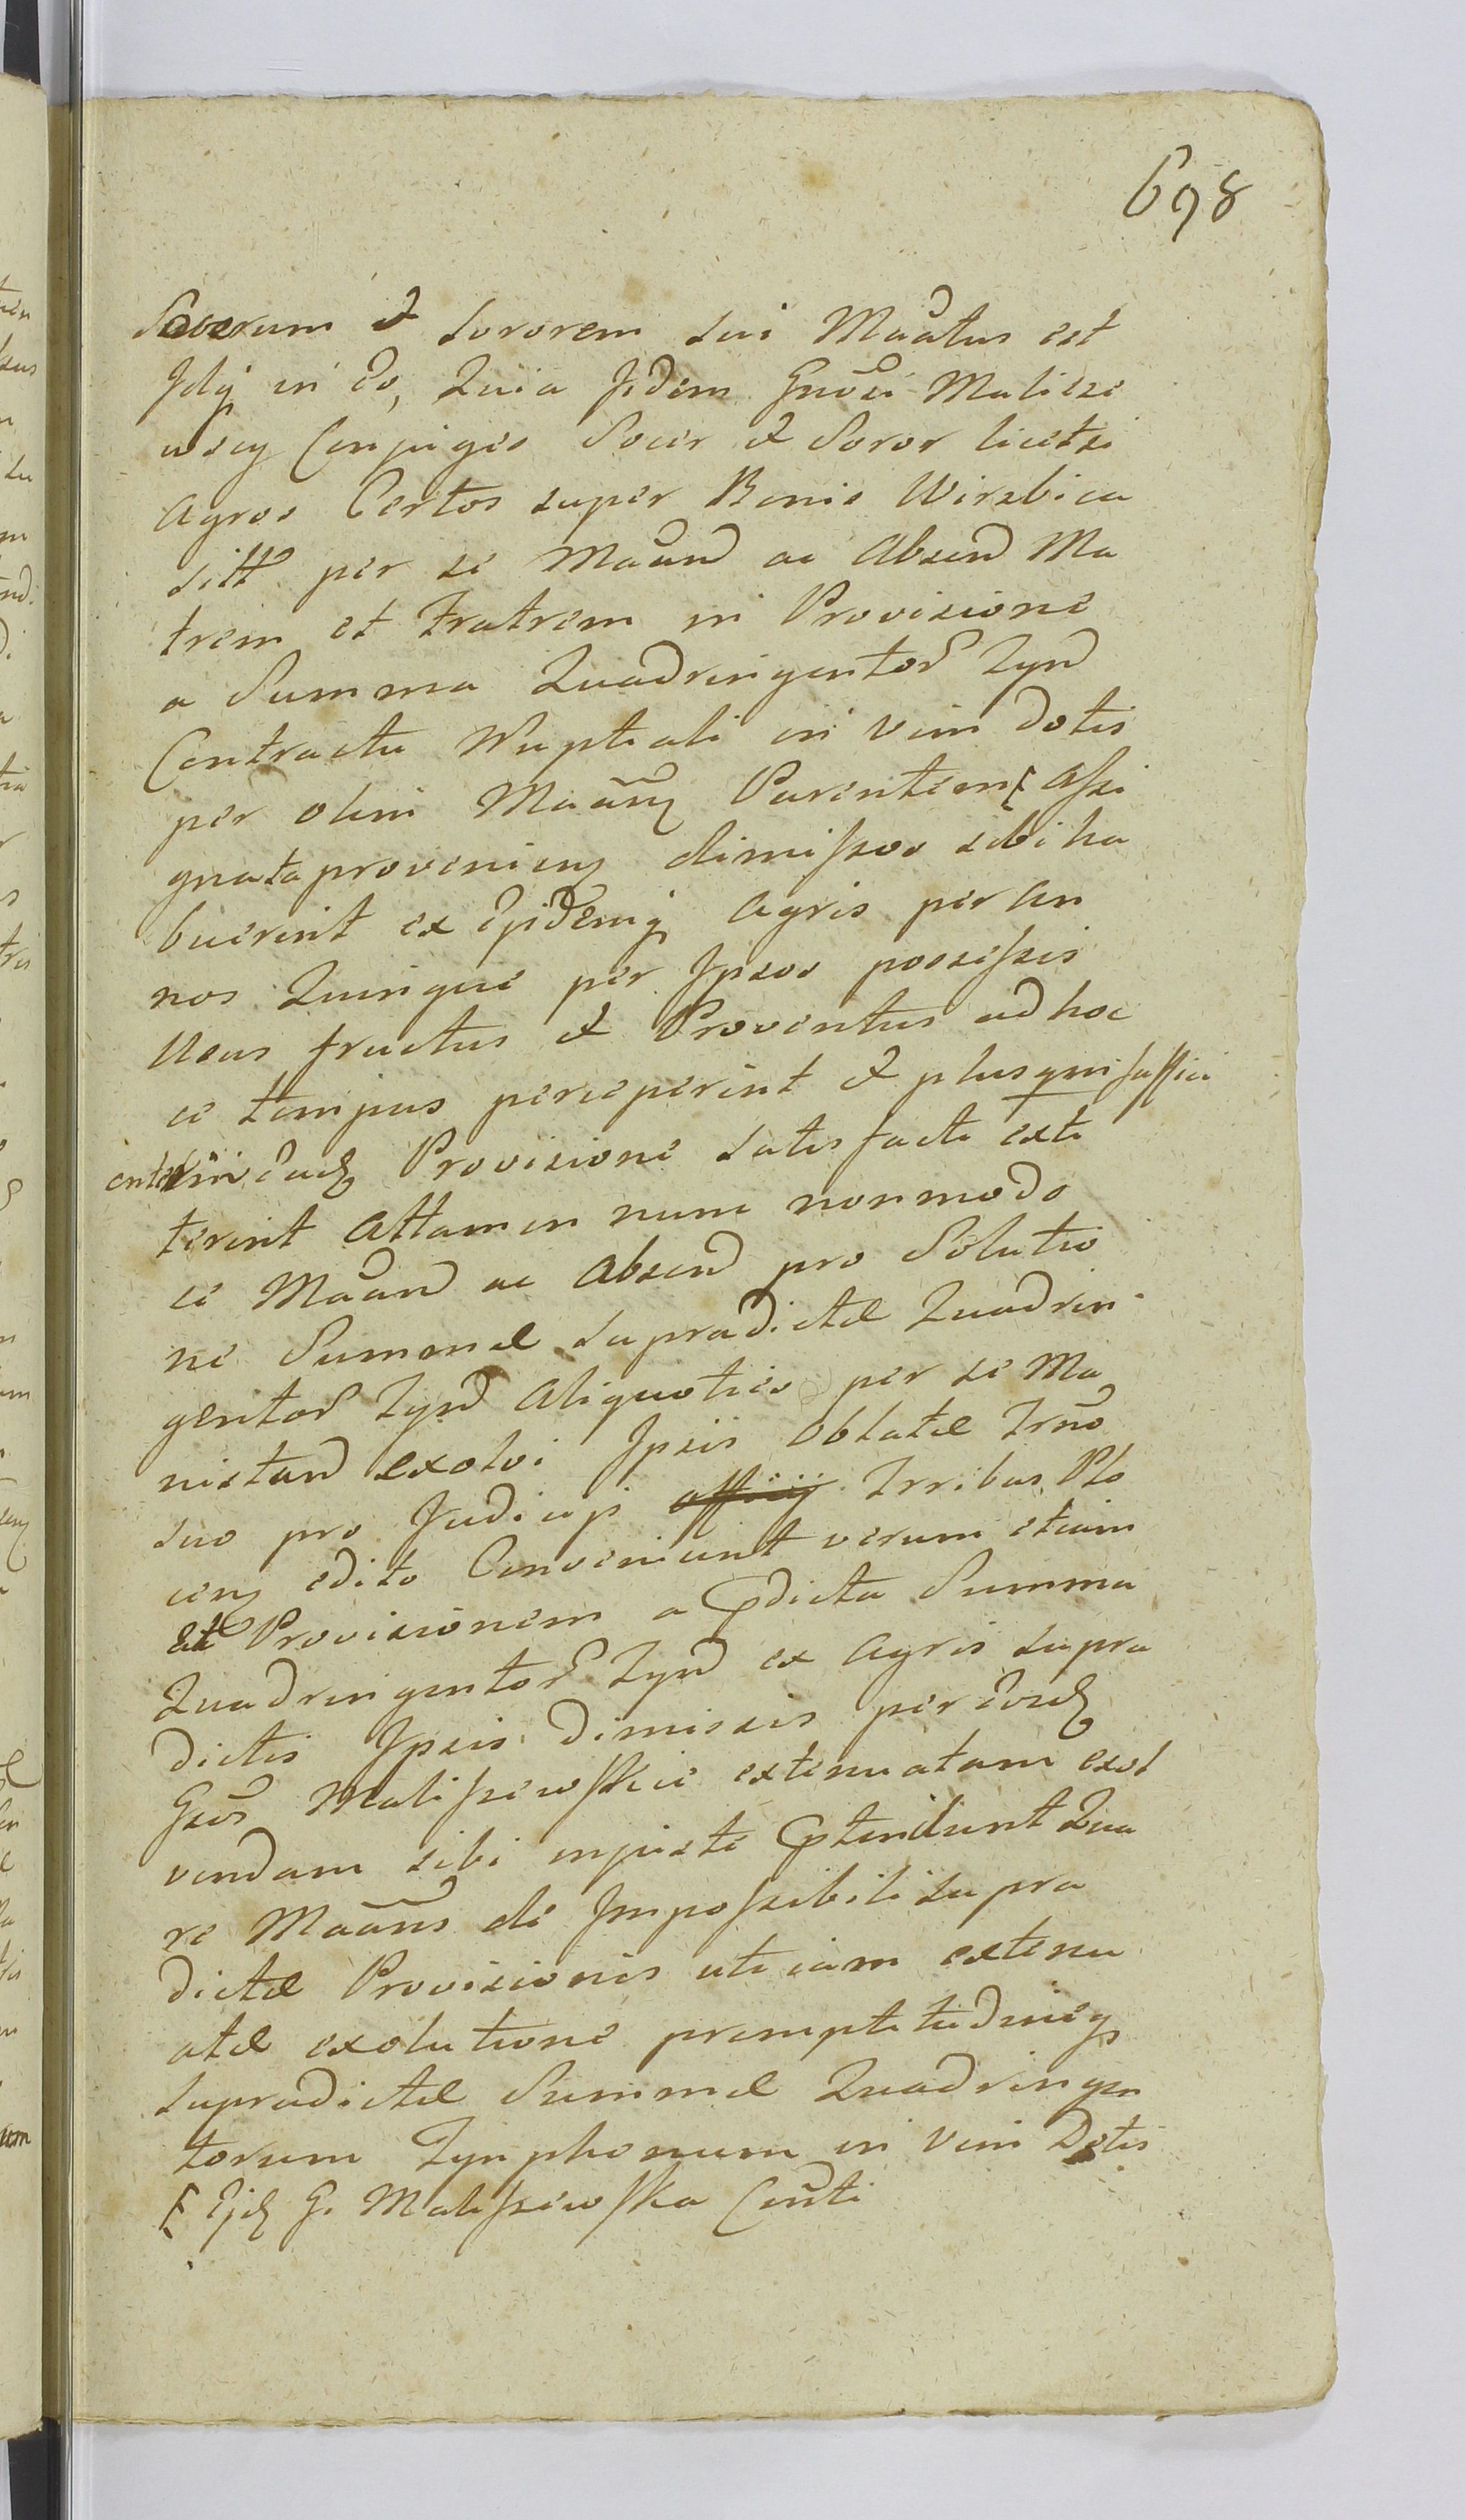 698
Socerum et Sororem sui Mañatus est
Idq in eo, Quia Iidem Gnosi Malisze
wscy Conjuges Socer et Soror licetsi
agros Certos super Bonis Wirzbica
sitt per se Mañand ac Absend Ma
trem et Fratrem in Provisione
a Summa Quadringentor Tynf
Contractu Nuptiali in vim dotis
per olim Mañang Parentem [ assi
gnata provenien dimissos sibi ha
buerint ex ijsdemq agris per an
nos Quinque per Ipsos possessis
Usus fructus et Proventus ad hoc
ce tempus perceperint et plusqm suffici
enter in ead Provisione satisfacti exti
terint attamen nunc non modo
ce Mañand ac Absend pro Solutio
ne Summæ supradictæ Quadrin
gentor Tynf aliquoties per se Ma
nistand exolvi Ipsis oblatæ Trmo
suo pro Judicijs officij Trribus Plo
cen edito Conveniunt verum etiam
et Provisionem a pdicta Summa
Quadringentor Tynf ex agris supra
dictis Ipsis dimissis per eosd
Gsos Maliszewskie extenuatam exol
vendam sibi injuste ptendunt Qua
re Mañans de Impossibili supra
dictæ Provisionis uti iam extenu
atæ exolutione promptitudineq
supradictæ Summæ Quadringen
torum Tynphonum in vim Dotis
[ Ejd G. Maliszewska Conti